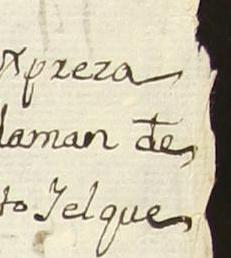 xpreza
laman de
to Jelque